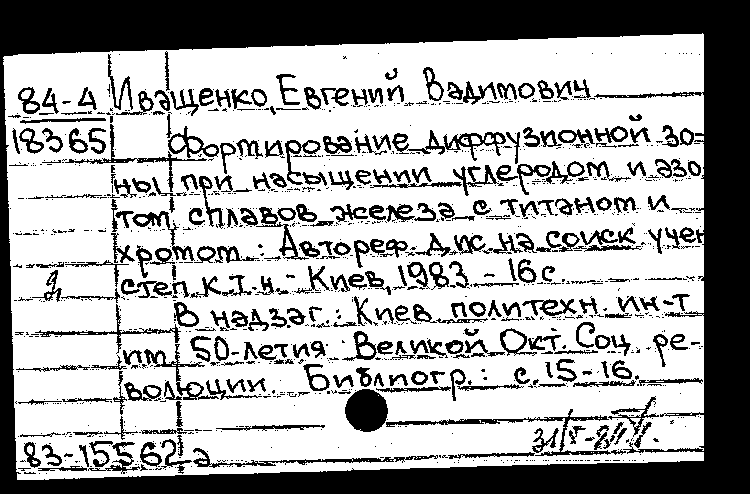 84-4 Иващенко, Евгений Вадимович
18365 Формирование диффузионной зо-
ны при насыщении углеродом и азо
том сплавов железа с титаном и
хромом : Автореф. дис на соиск учен
степ к.т.н. - Киев, 1983 - 16 с
В надзаг.: Киев политехн. ин-т
им 50-летия Великой Окт. Соц ре-
волюции. Библиогр.: с. 15-16.
83-15562 а